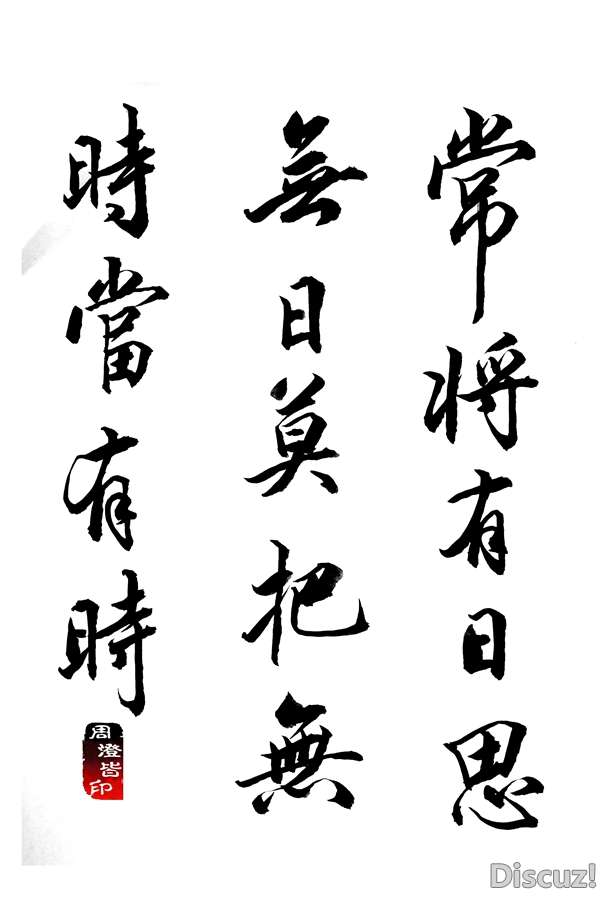 常將有日思
無日莫把無
時當有時
周澄皆印
Discuz!